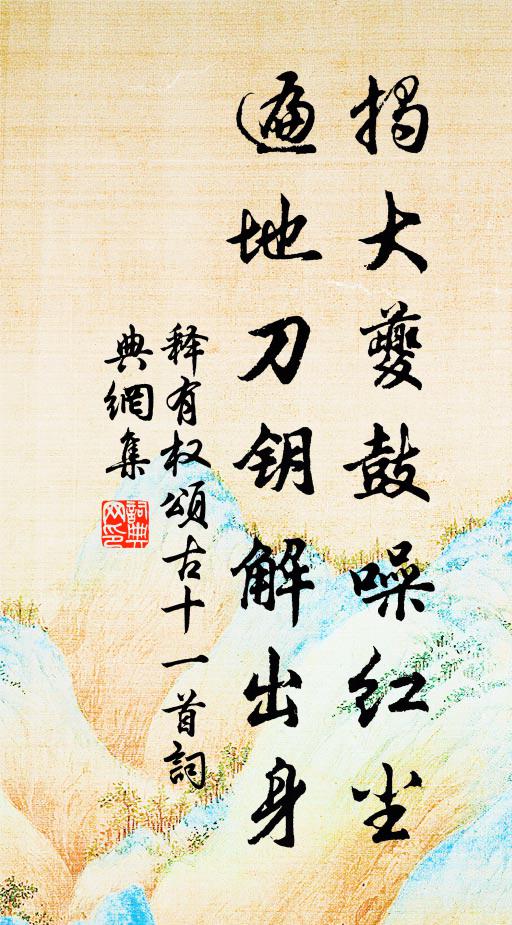 揭大夔鼓噪红尘
遍地刀钥解出身
释有权颂古十一首詞
典網集
詞典
网印